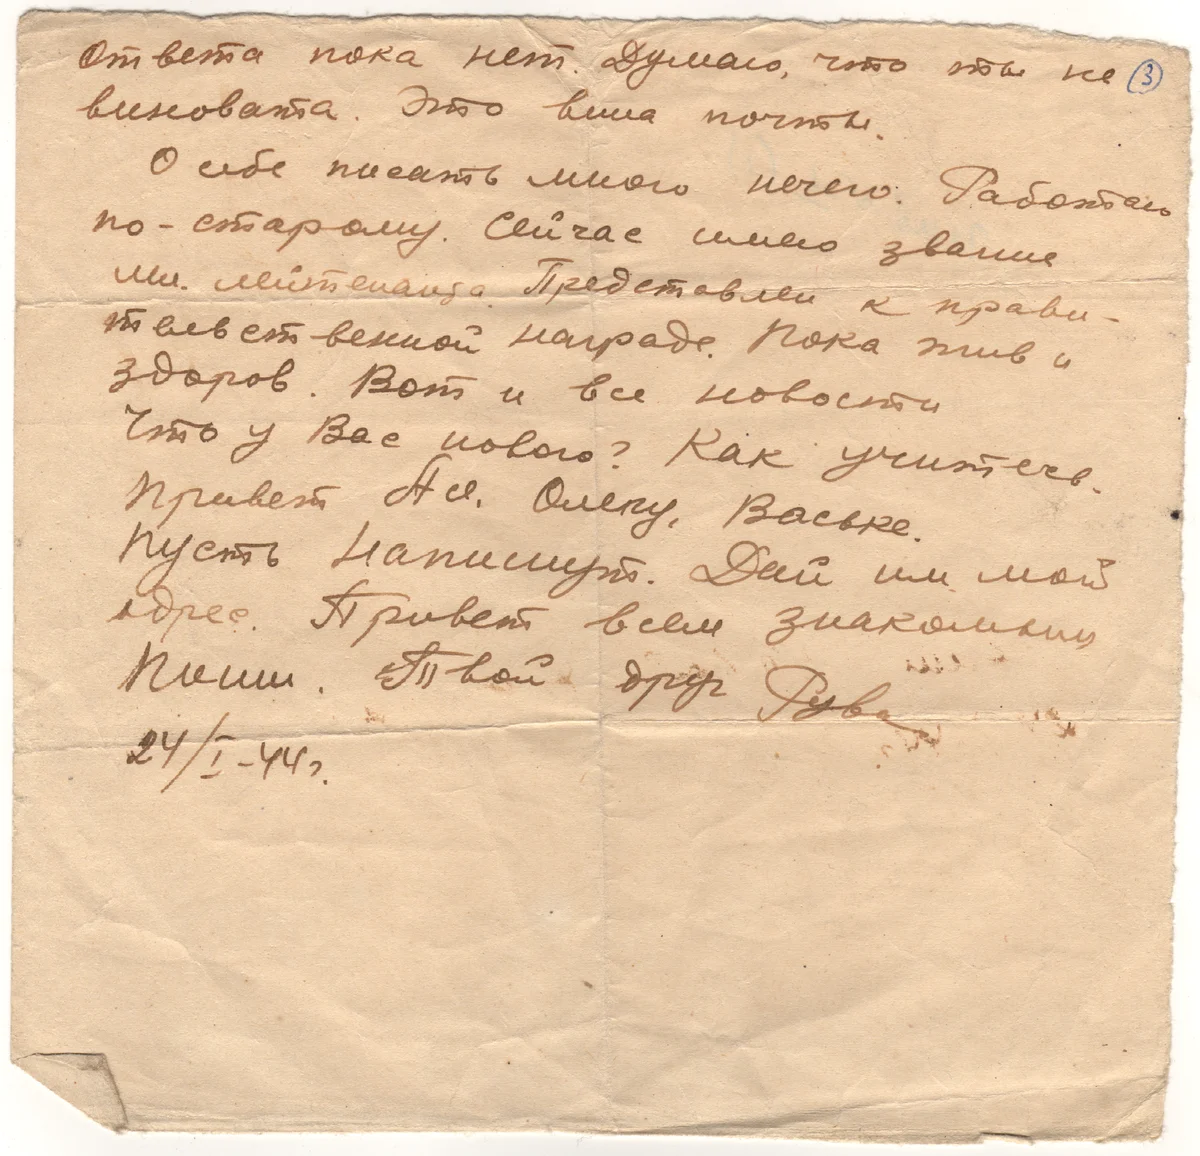 Ответа пока нет. Думаю, что ты не ③
виновата. Это вина почты.
О себе писать много нечего. Работаю
по-старому. Сейчас имею звание
мл. лейтенанта. Представлен к прави-
тельственной награде. Пока жив и
здоров. Вот и все новости
Что у Вас нового? Как учитесь.
Привет Асе, Олегу, Ваське.
Пусть напишут. Дай им мой
адрес. Привет всем знакомым
Пиши. Твой друг Рува
24/I-44г.